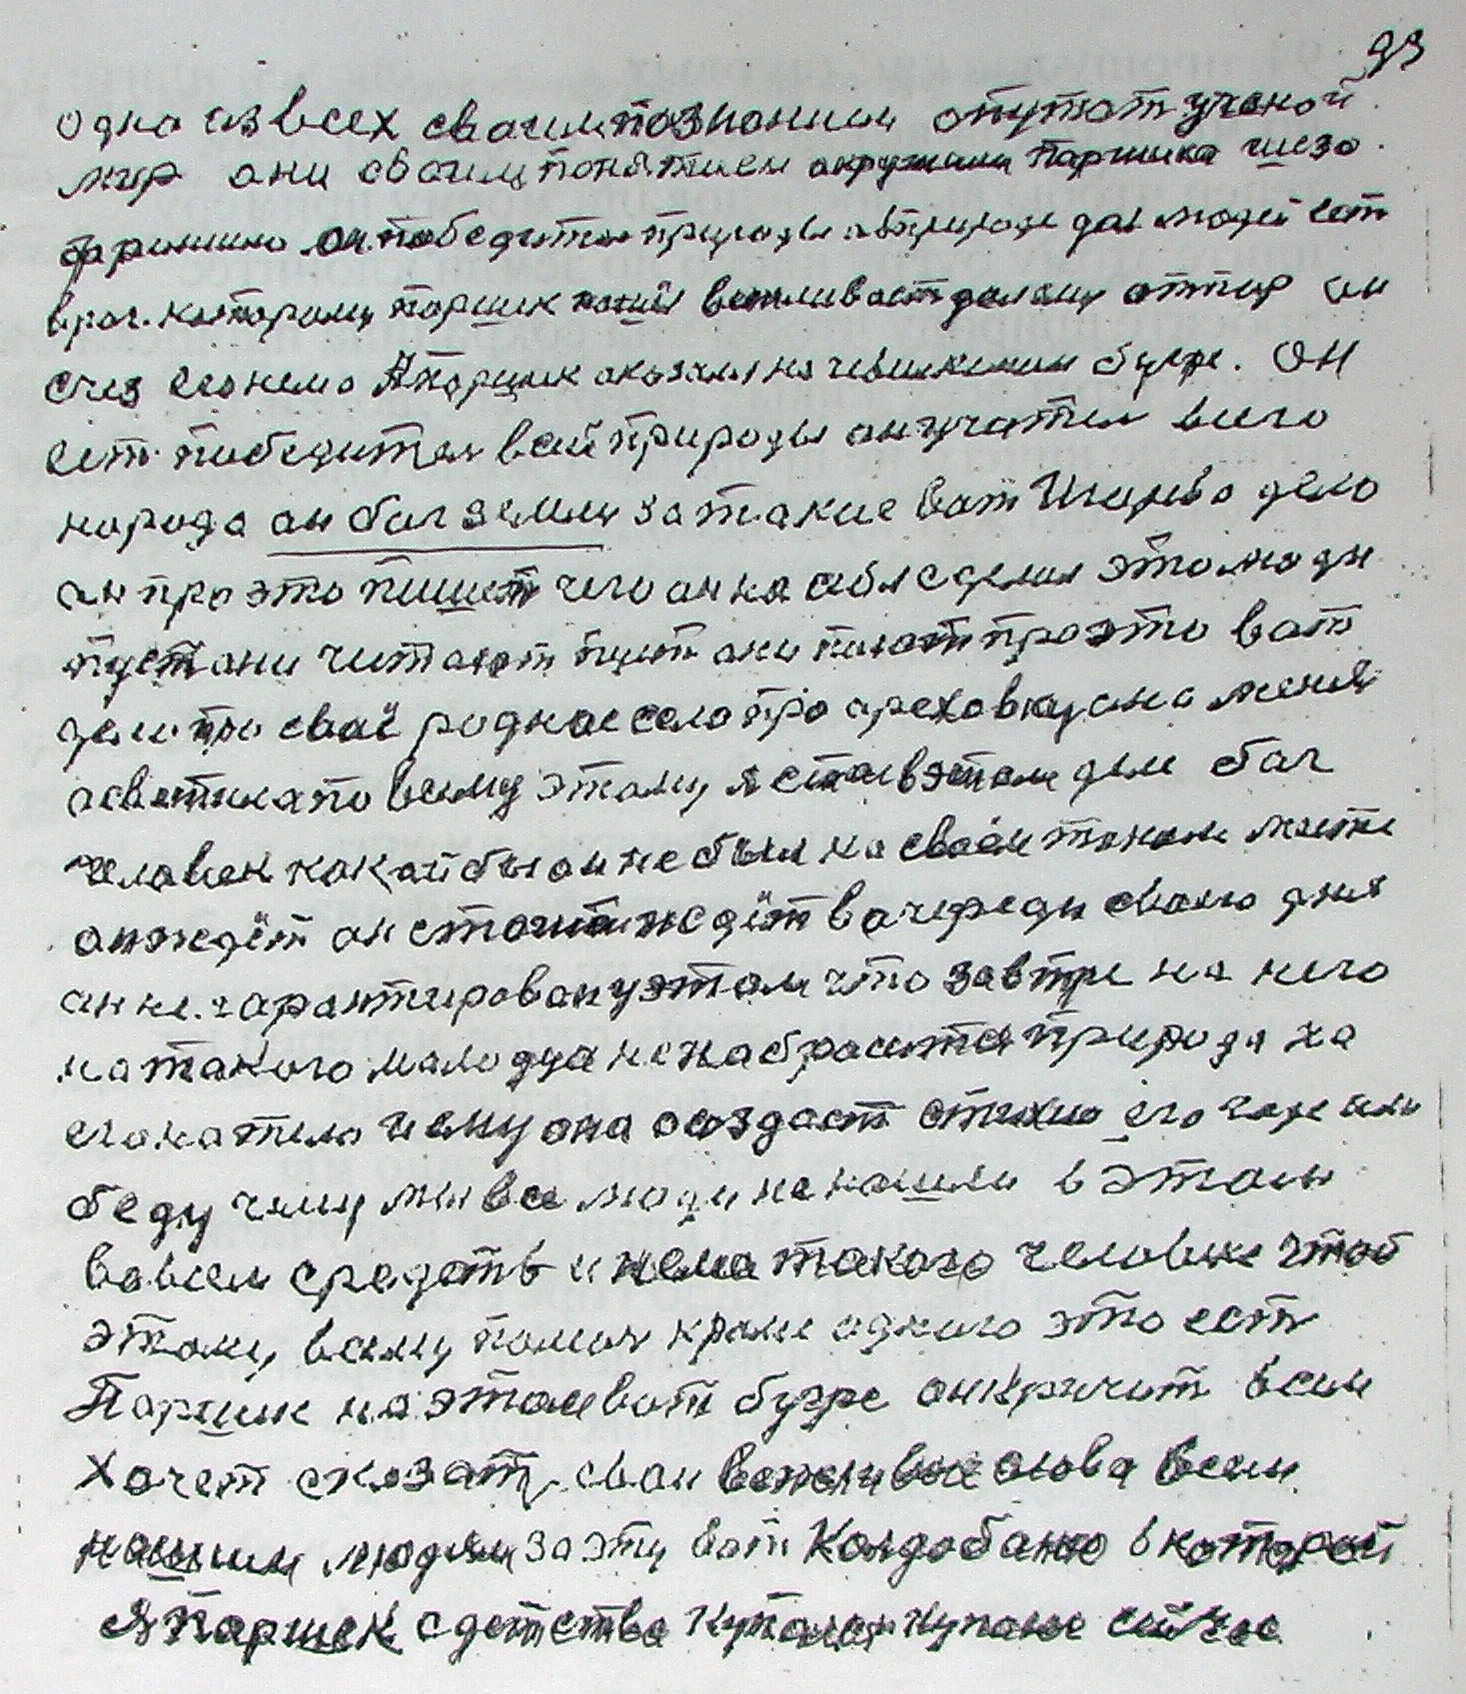 93
одна из всех сваим познонием опутат ученой
мир они сваим понятием акружили Паршика
он победител природы в природе для людей ест
враг. которому паршик наш вежливаст далему отпор он
А Паршик оказался на чевилкином бугре. Он
ест победител всей природы он учител всего
народа он бог земли за такие вот Иванёво дело
он про это пишет чего он на себя сделал это люди
пуст они читают пуст они поют про это вот
дели про своё родное село про ореховку она меня
асветила по всему этому я стал в этом деле бог
человек какой бы он не был на своём таком месте
он ждёт он стоит и ждёт в очереди своего дня
он не гарантирован у этом что завтре на него
на такого молодца не набросится природа на
его на тело и ему она создаст стихию его горе или
беду чему мы все люди не нашли в этом
во всем средств и нема такого человека чтоб
этому всему помог кроме одного это ест
Паршик на этом вот бугре он кричит всем
хочет сказат свои вежливые слова всем
нашим людям за эту вот Колдобаню в которой
я Паршек с детства купался и купаюс сейчас